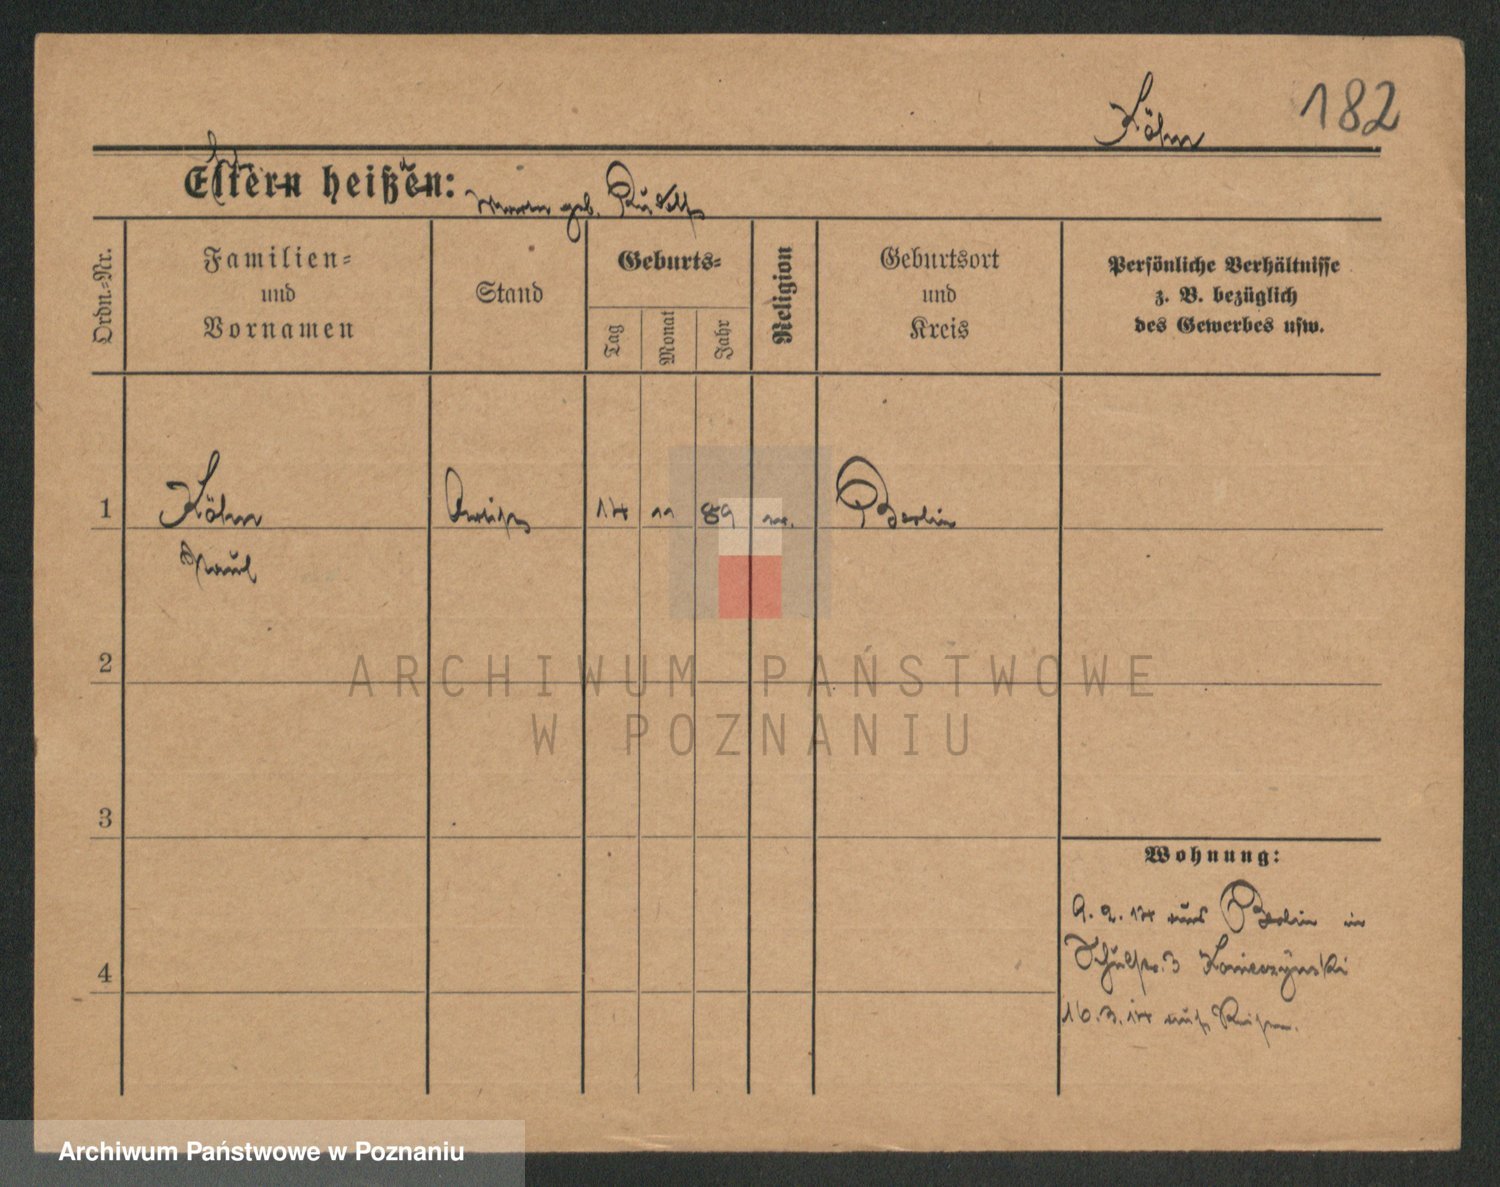 Köhn 182
Eltern heißen:
geb.
Ordn.-Nr.
Familien-
und
Vornamen
Stand
Geburts-
Tag
Monat
Jahr
Religion
Geburtsort
und
Kreis
Persönliche Verhältnisse
z. B. bezüglich
des Gewerbes usw.
1 Köhn 14 11 89 Berlin
Paul
2
3
4
Wohnung:
9. 2. 14 aus Berlin in
Schulstr. 3 Konieczynski
16. 3. 14 auf Reisen.
ARCHIWUM PAŃSTWOWE
W POZNANIU
Archiwum Państwowe w Poznaniu